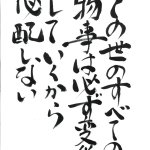 の世のすべての
物事は必ず変
していくから
心配しない